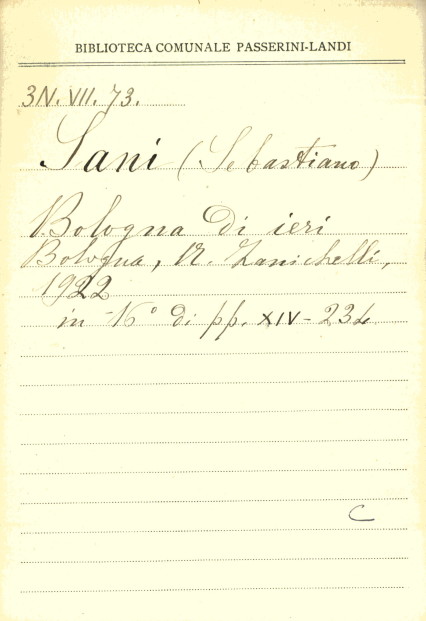 BIBLIOTECA COMUNALE PASSERINI-LANDI
3N. VII. 73.
Sani (Sebastiano)
Bologna di ieri
Bologna, N. Zanichelli,
1922
in -16° di pp. XIV - 234
C